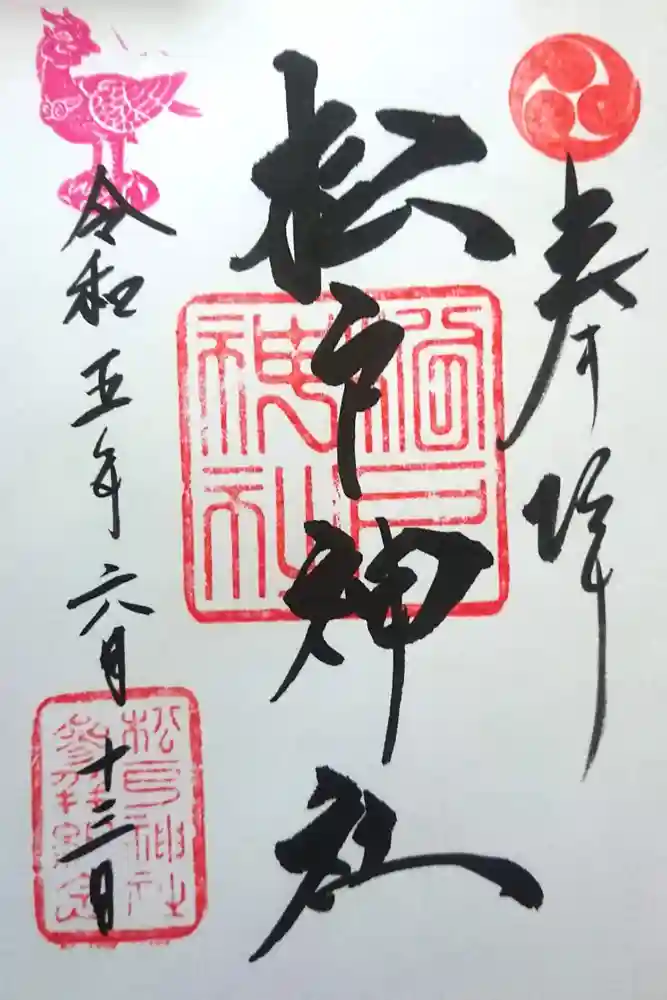 奉拝
松戸神社
松戸
神社
令和五年六月十三日
松戸神社
參拝記念